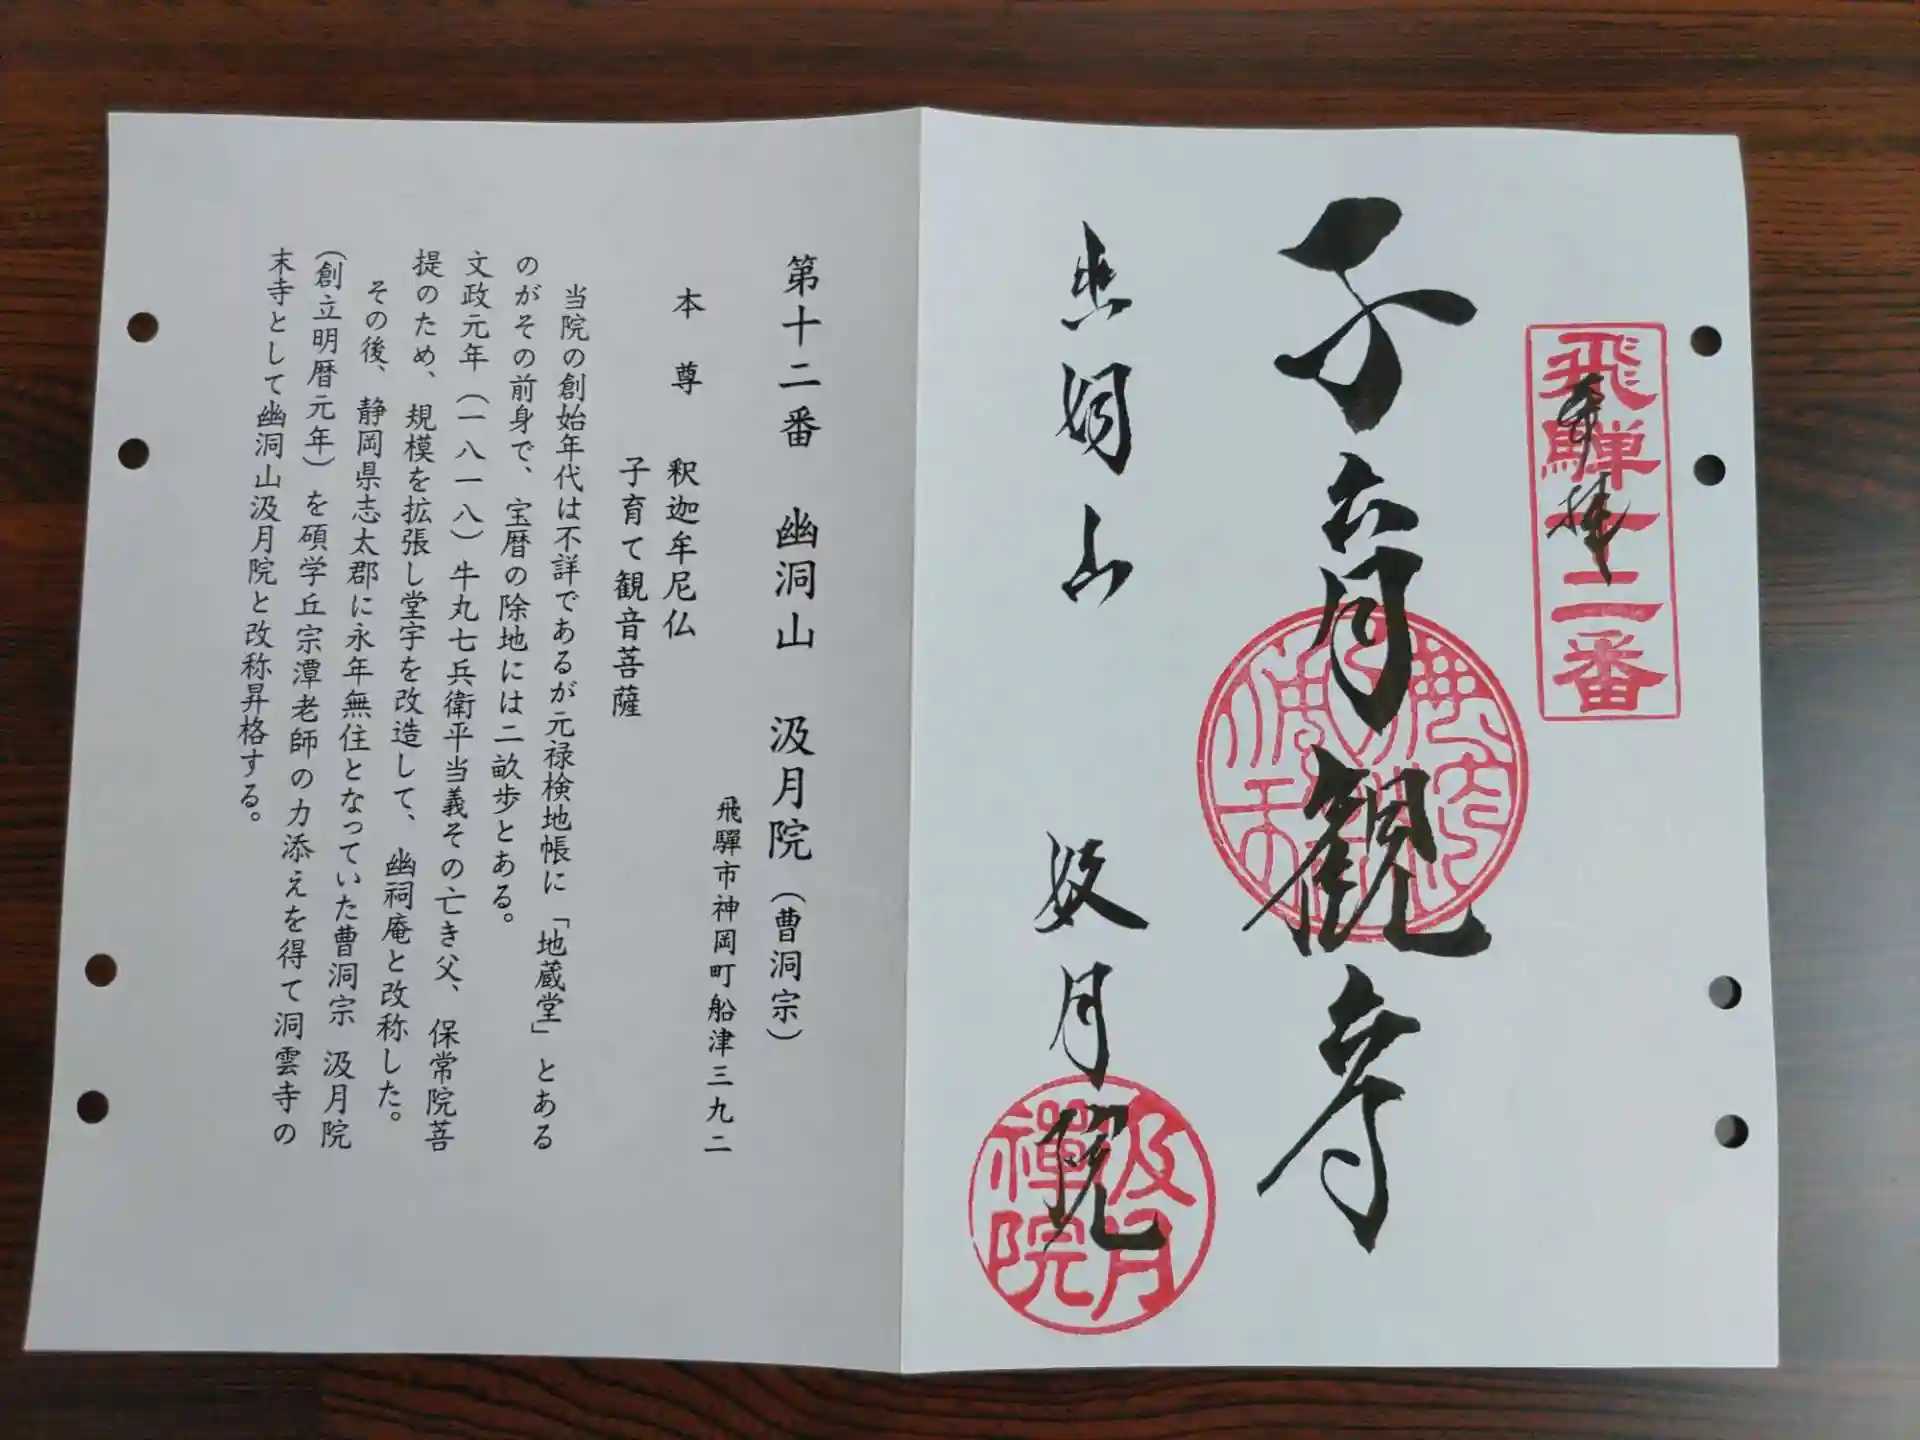 飛騨十二番
奉拝
子育観音
幽洞山 汲月院
汲月禅院
第十二番 幽洞山 汲月院（曹洞宗）
飛騨市神岡町船津三九二
本 尊 釈迦牟尼仏
子育て観音菩薩
当院の創始年代は不詳であるが元禄検地帳に「地蔵堂」とある
のがその前身で、宝暦の除地には二畝歩とある。
文政元年（一八一八）牛丸七兵衛平当義その亡き父、保常院菩
提のため、規模を拡張し堂宇を改造して、幽祠庵と改称した。
その後、静岡県志太郡に永年無住となっていた曹洞宗 汲月院
（創立明暦元年）を碩学丘宗潭老師の力添えを得て洞雲寺の
末寺として幽洞山汲月院と改称昇格する。